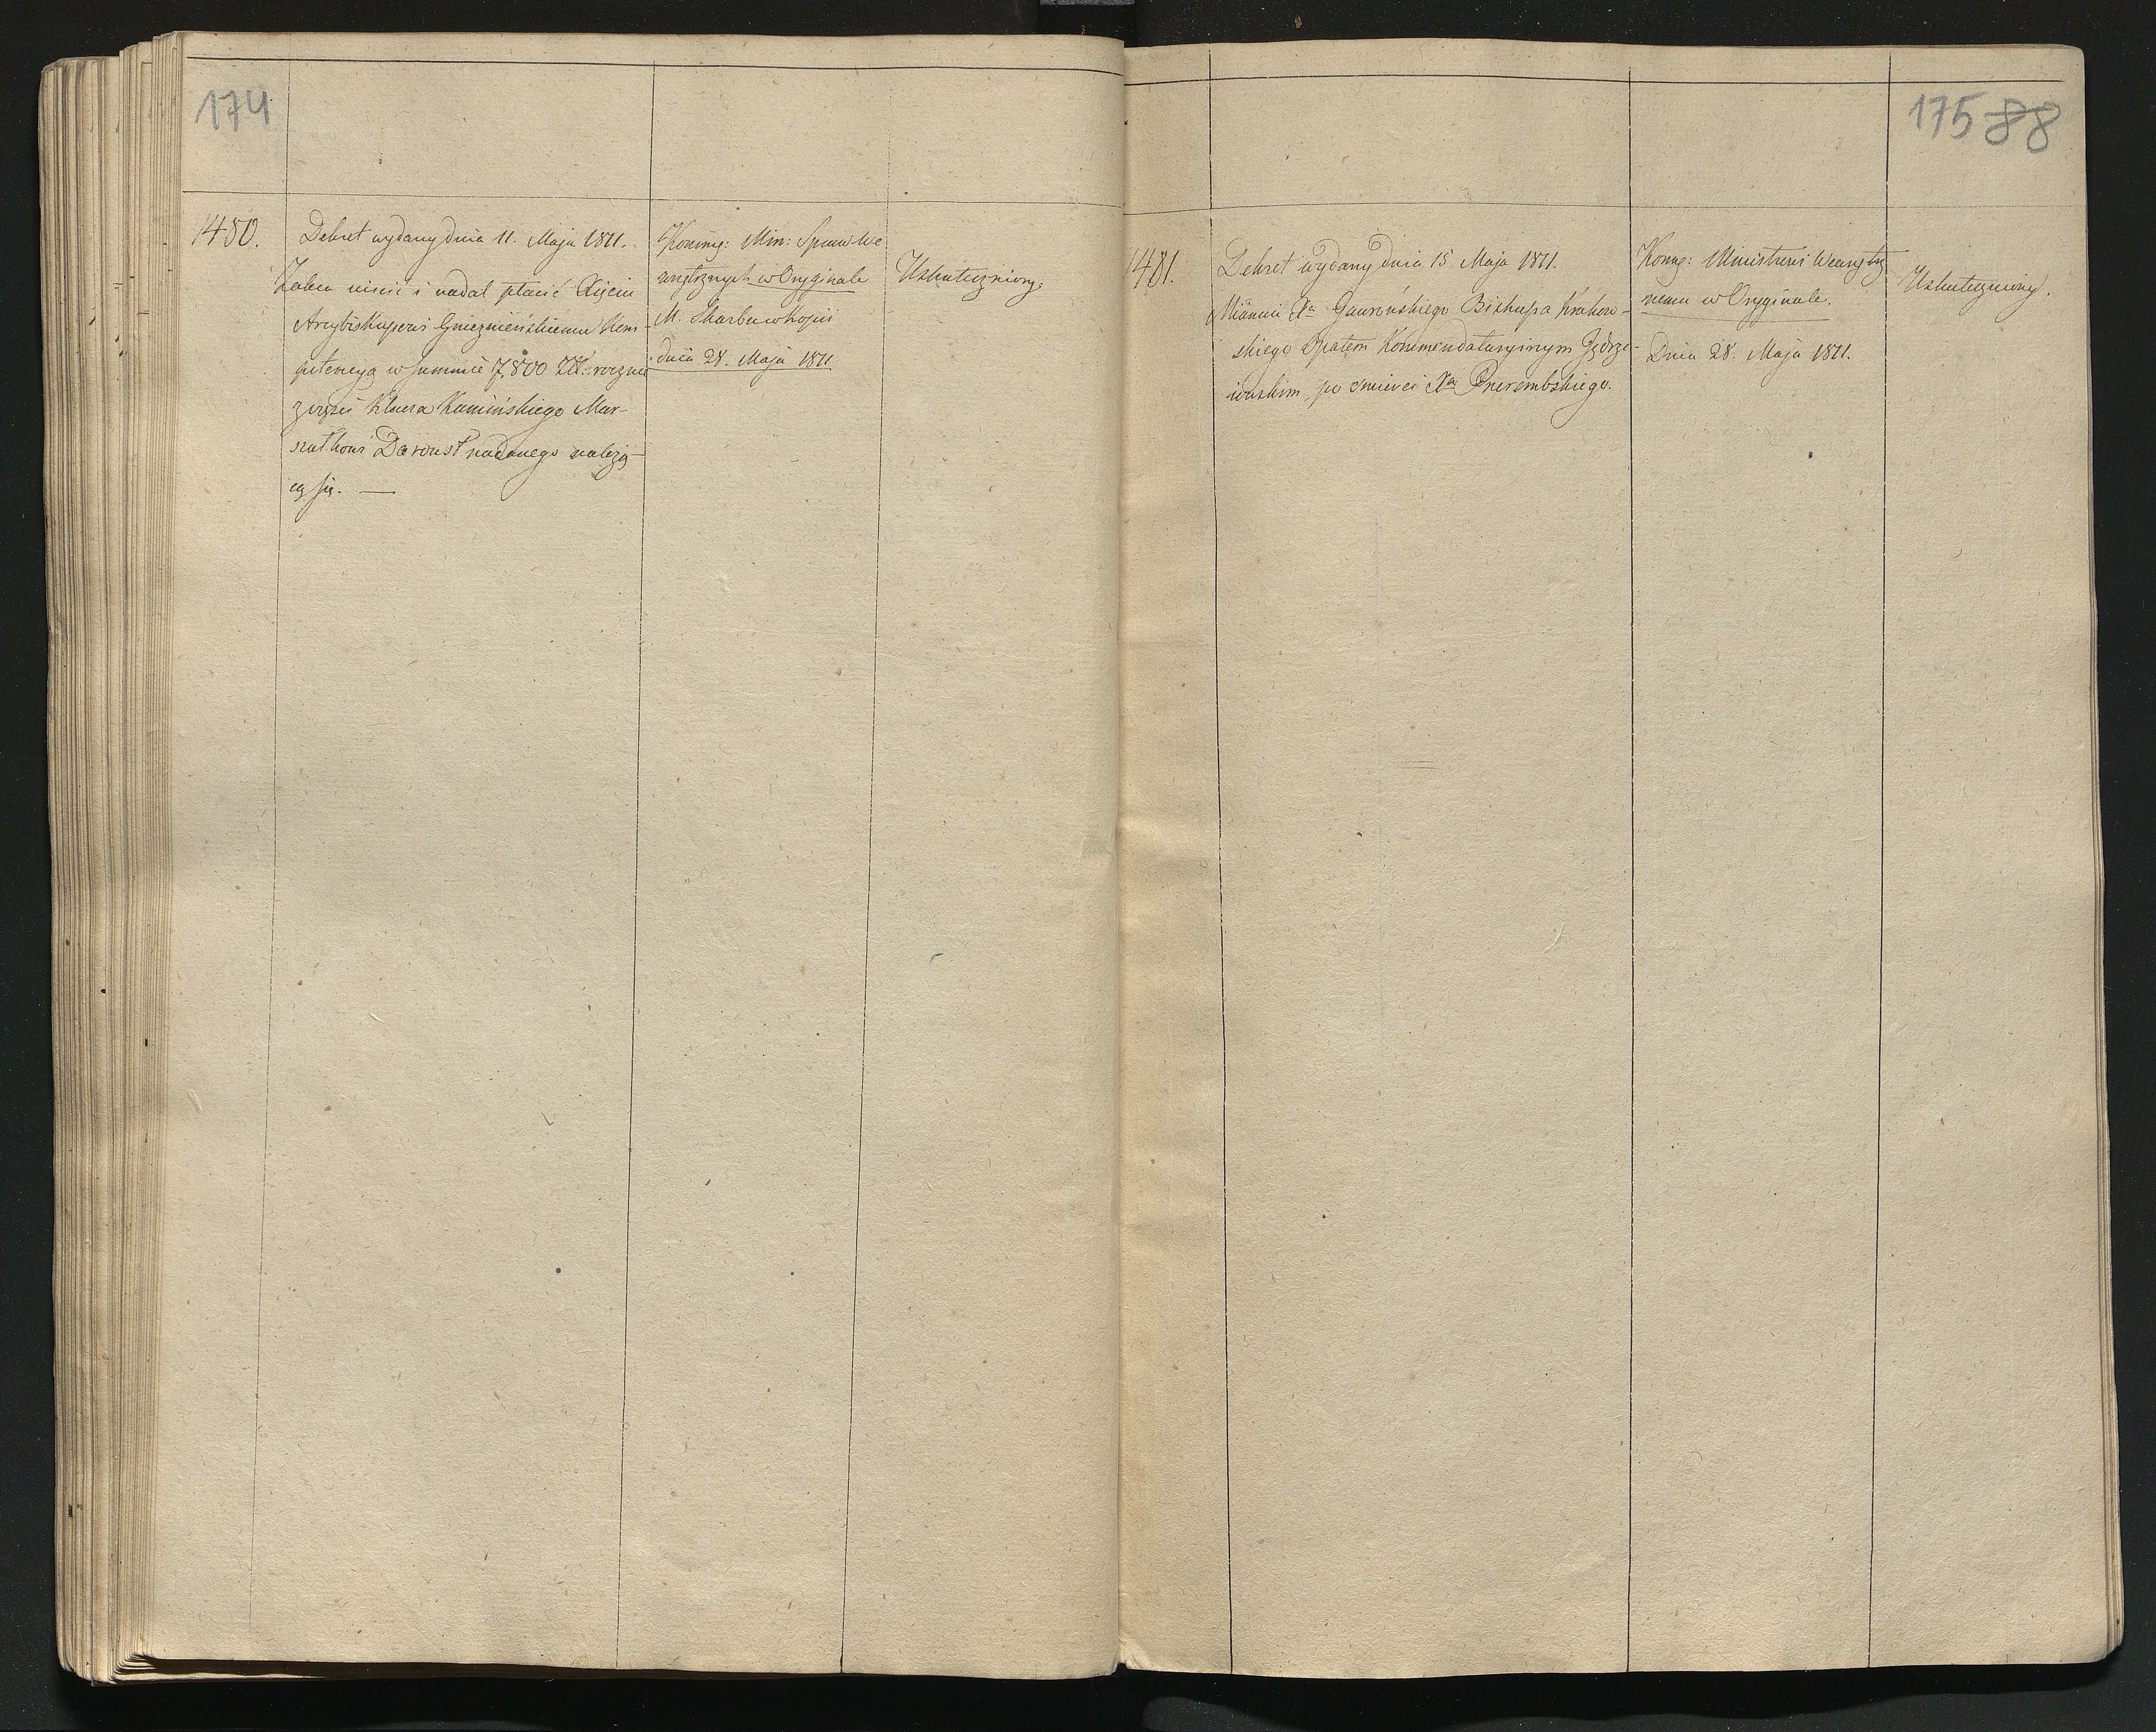 174
1480.
Dekret wydany dnia 11. Maja 1811.
Zaleca uiścić i nadal płacić Xięciu
Arcybiskupowi Gnieznieńskiemu Kom-
petencyą w summie 7,800 Złł: rocznie
z części Klucza Kamińskiego Mar-
szałkowi Davoust nadanego należą-
cą się. —
Kommu: Min: Spraw We
wnętrznych w Oryginale
M. Skarbu w kopii
dnia 28. Maja 1811.
Uskuteczniony.
175 88
1481.
Dekret wydany dnia 15 Maja 1811.
Mianuie Xa Gawrońskiego Biskupa Krakow-
skiego Opatem Kommendataryinym Jędrze-
iowskim, po śmierci Xa Prerembskiego.
Komu: Ministrowi Wewnętrz
nemu w Oryginale.
Dnia 28. Maja 1811.
Uskuteczniony.